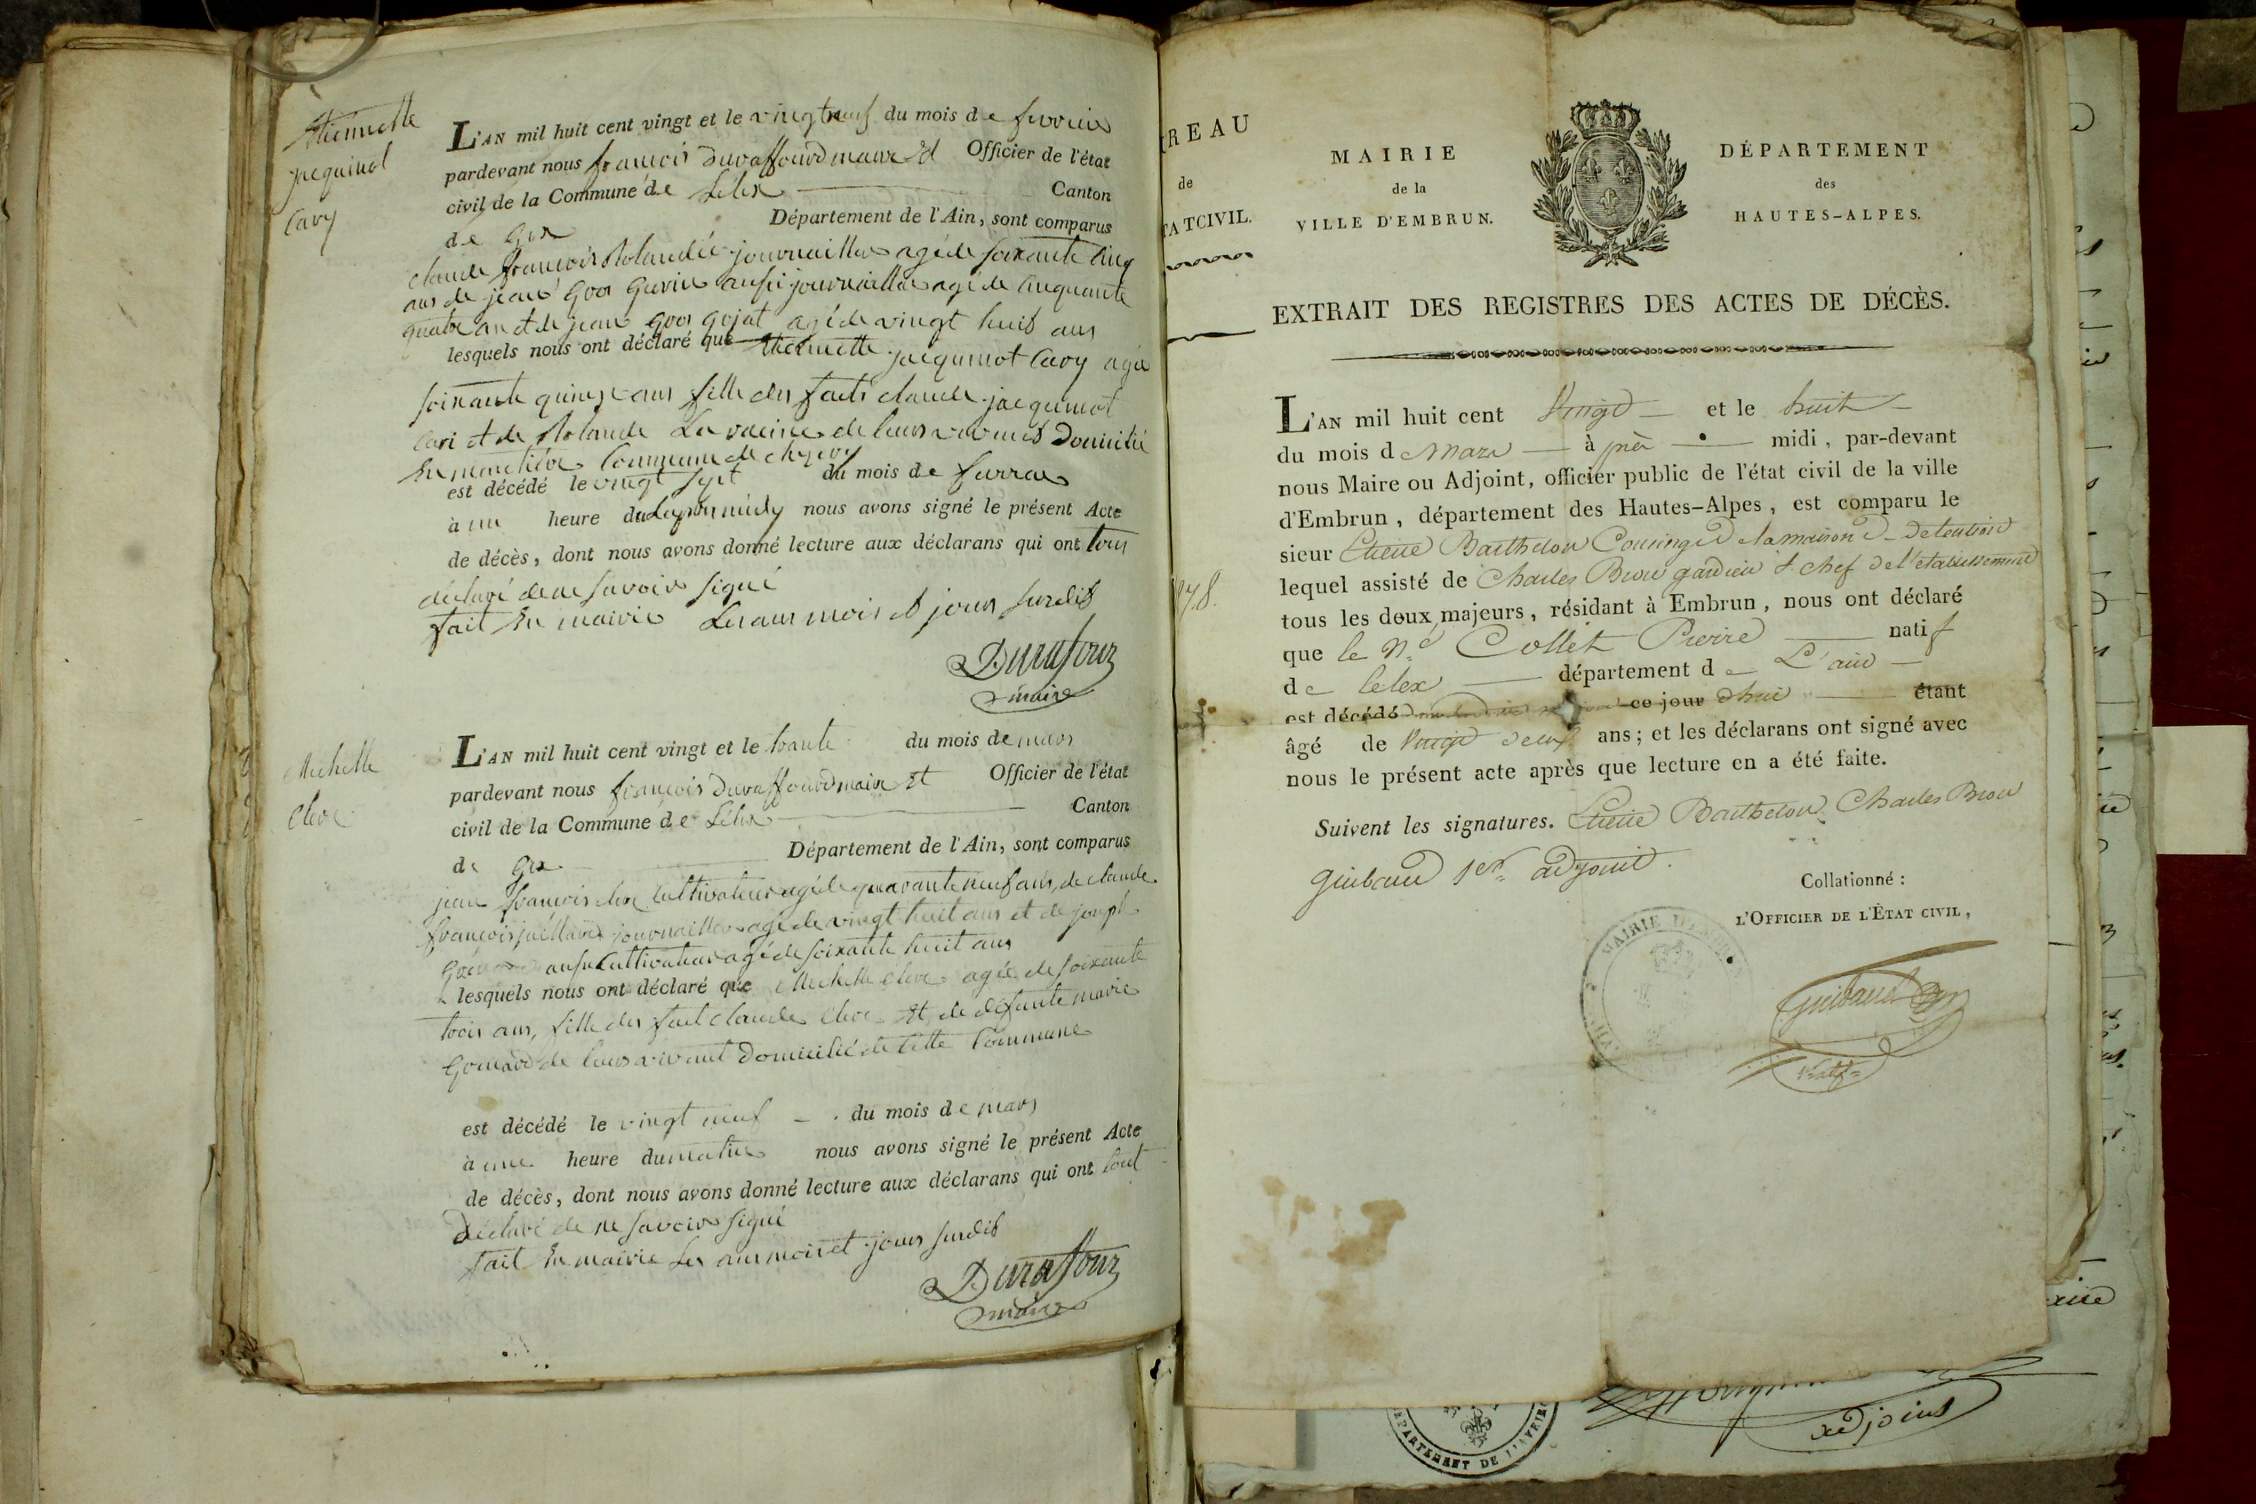 Etiennette
jacquinot
Cavy
L'AN mil huit cent vingt et le vingt neuf du mois de fevrier
pardevant nous françois duraffourd maire et Officier de l'état
civil de la Commune de Lélex Canton
de Gex Département de l'Ain, sont comparus
claude françois Rolandée journaillier agé de soixante cinq
ans de jean gros gurin aussi journaillier agé de cinquante
quatre an et de jean gros gojat agé de vingt huit ans
lesquels nous ont déclaré que Etiennette jacquinot Cavy agée
soixante quinze ans fille des feu claude jacquinot
Cavi et de Rolande La racine de leurs vivants Domicilié
En Commune de
est décédé le vingt sept du mois de fevrier
à une heure du nous avons signé le présent Acte
de décès, dont nous avons donné lecture aux déclarans qui ont tous
déclaré de ne savoir signé
fait En mairie Les ans mois et jours susdits
Durafour
maire
Michelle
Cloc
L'AN mil huit cent vingt et le trante du mois de mars
pardevant nous françois duraffourd maire et Officier de l'état
civil de la Commune de Lélex Canton
de Gex Département de l'Ain, sont comparus
jean françois cultivateur agé de quarante neuf ans, de claude
françois journaillier agé de vingt huit ans et de joseph
aussi Cultivateur agé de soixante huit ans
lesquels nous ont déclaré que Michelle agée de soixante
trois ans, fille des claude et de défunte marie
de leurs vivant Domicilié de cette Commune
est décédé le vingt neuf du mois de mars
à une heure du matin nous avons signé le présent Acte
de décès, dont nous avons donné lecture aux déclarans qui ont tout
Déclaré de ne savoir signé
fait En mairie Les ans mois et jours susdits
Durafour
maire
REAU
de
TATCIVIL.
78.
MAIRIE
de la
VILLE D'EMBRUN.
DÉPARTEMENT
des
HAUTES-ALPES.
EXTRAIT DES REGISTRES DES ACTES DE DÉCÈS.
L'AN mil huit cent Vingt et le huit
du mois de Mars à près midi, par-devant
nous Maire ou Adjoint, officier public de l'état civil de la ville
d'Embrun, département des Hautes-Alpes, est comparu le
sieur Barthelon la maison de detention
lequel assisté de Charles Brou gardien chef de l'etablissement
tous les deux majeurs, résidant à Embrun, nous ont déclaré
que le né Collet Pierre natif
de lelex département de L'ain
est décédé ce jour dhui étant
âgé de Vingt deux ans; et les déclarans ont signé avec
nous le présent acte après que lecture en a été faite.
Suivent les signatures. Barthelon Charles Brou
Guibaud 1er adjoint.
Collationné :
L'OFFICIER DE L'ÉTAT CIVIL,
MAIRIE D'EMBRUN
Guibaud
DÉPARTEMENT DE L'AVEYRON
adjoint